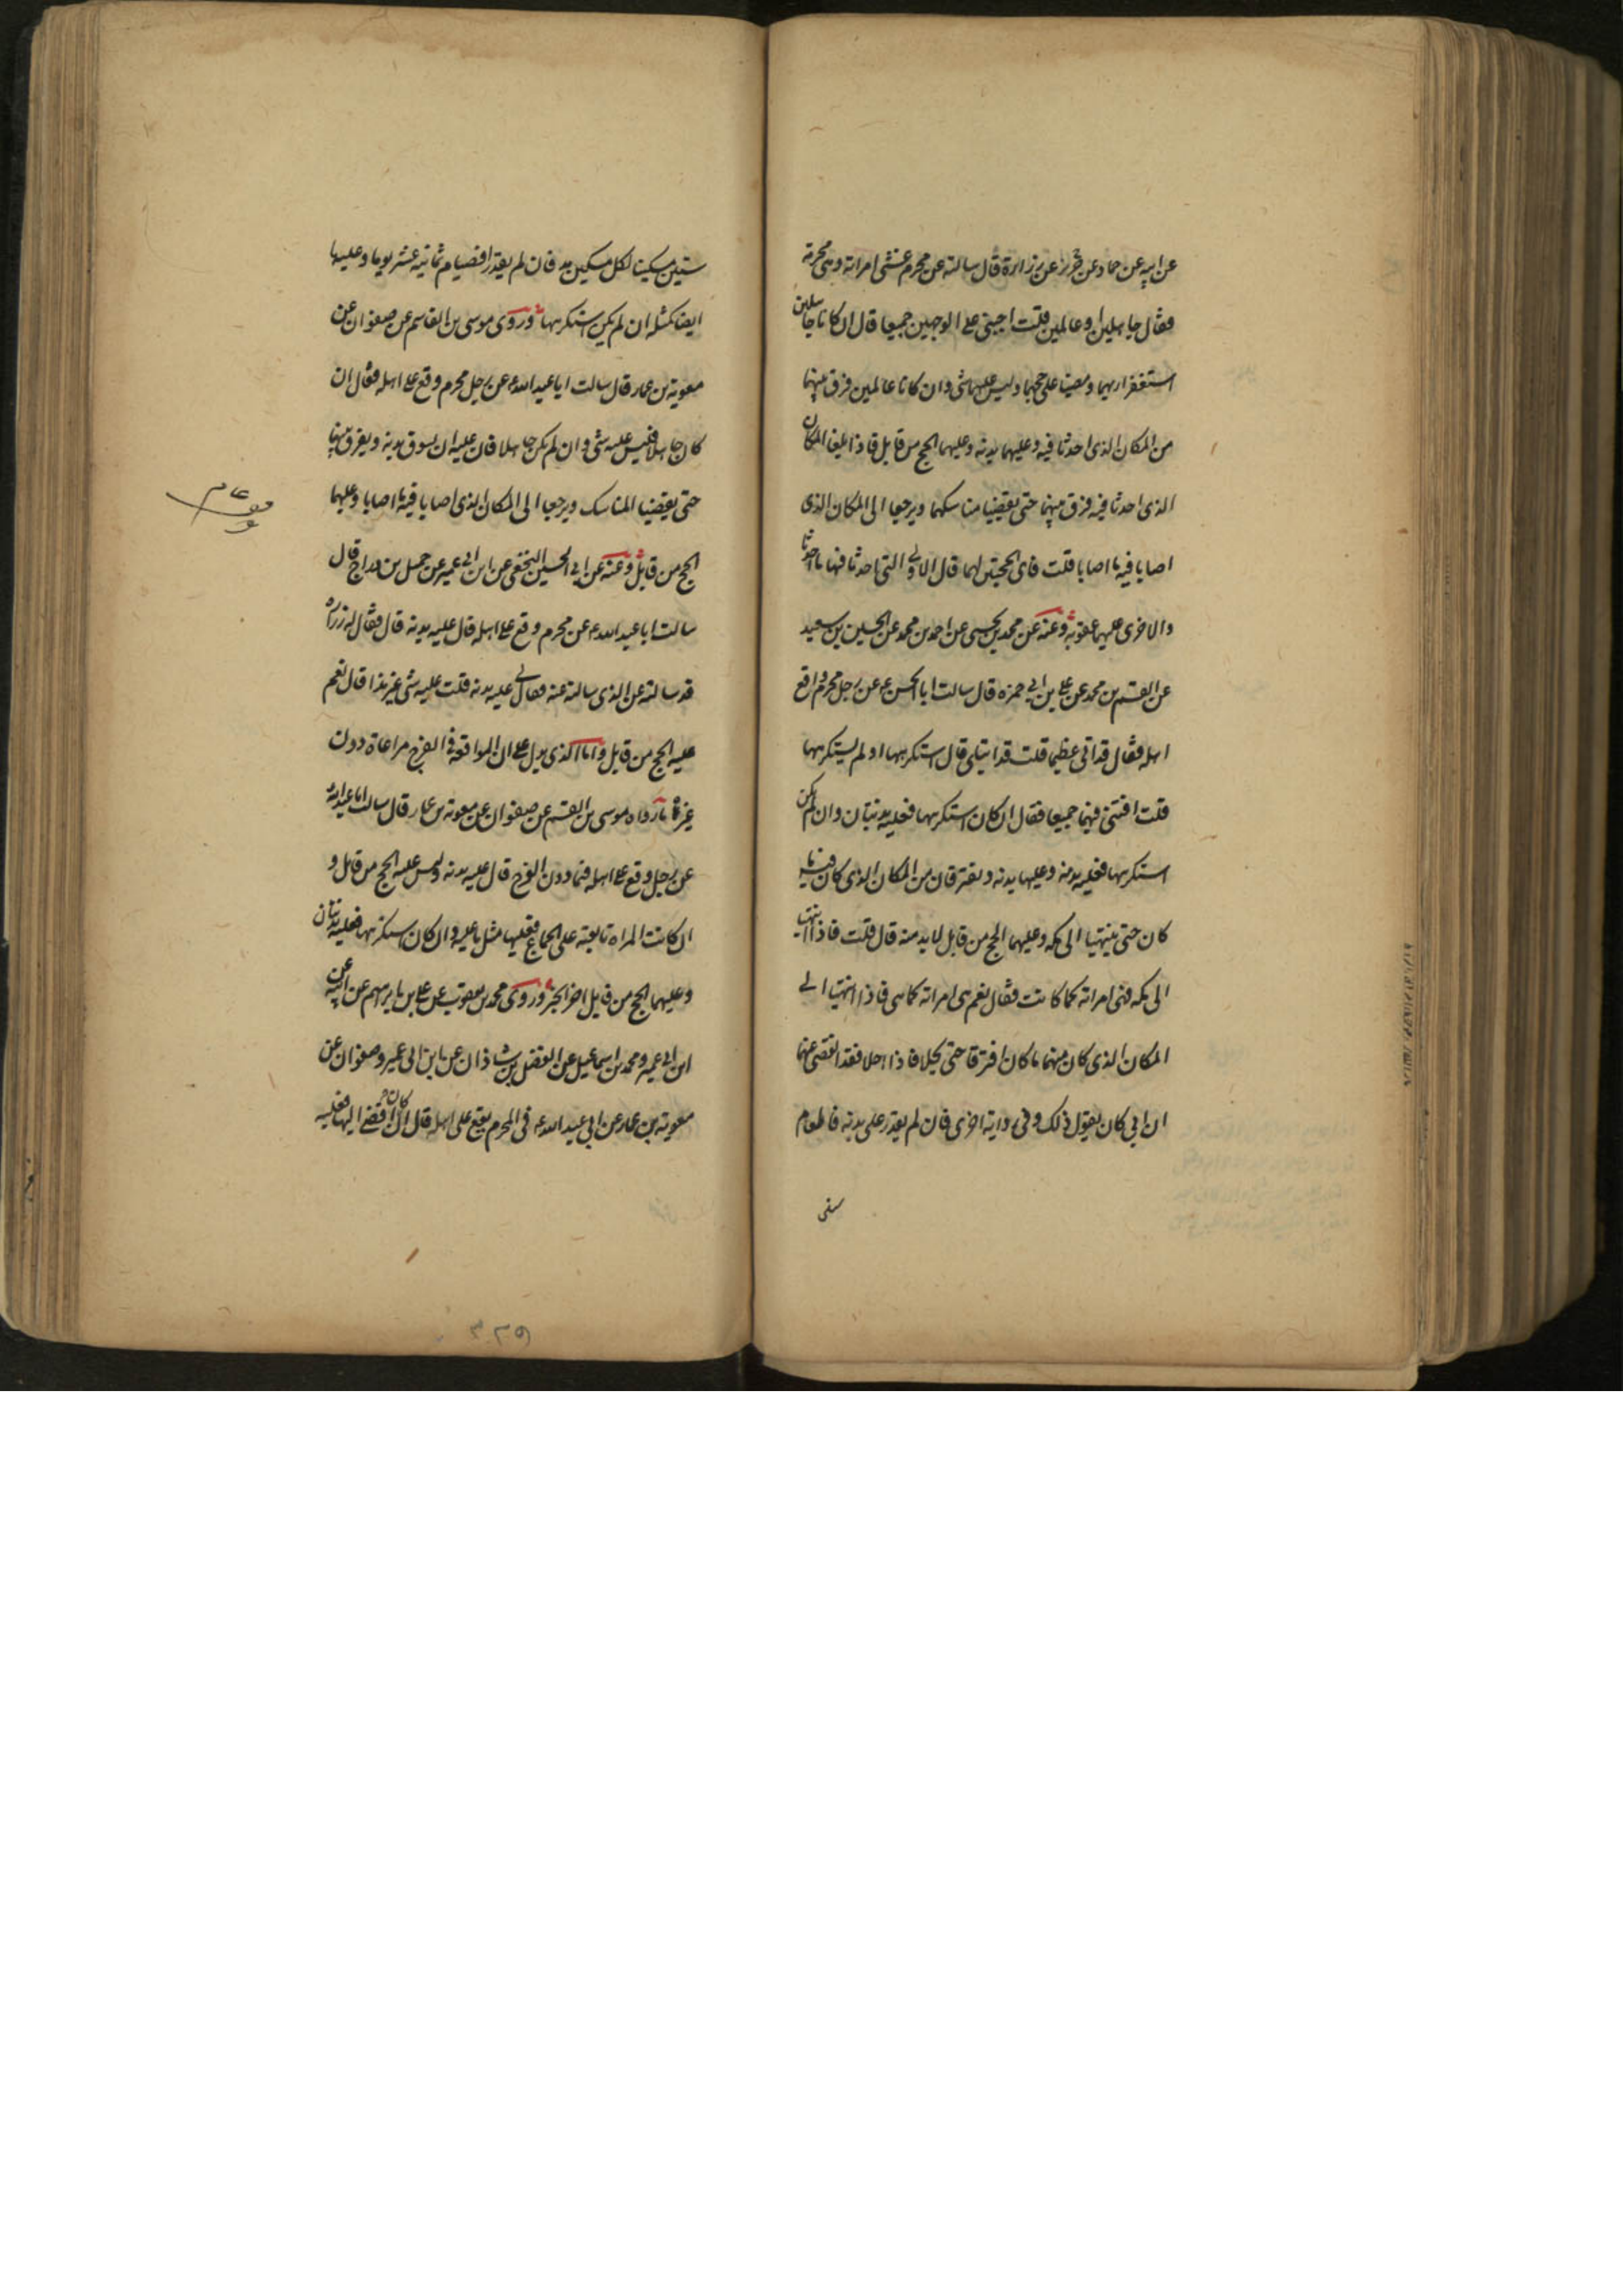 عن ابيه عن حماد عن حريز عن زرارة قال سالته عن محرم غشى امراته وهي محرمة
فقال جاهلين او عالمين قلت اجبنى على الوجهين جميعا قال ان كانا جاهلين
استغفرا ربهما ومضيا على حجهما وليس عليهما شى وان كانا عالمين فرق بينهما
من المكان الذى احدثا فيه وعليهما بدنه وعليهما الحج من قابل فاذا بلغا المكان
الذى احدثا فيه فرق بينهما حتى يقضيا مناسكهما ويرجعا الى المكان الذى
اصابا فيه ما اصابا قلت فاى الحجتين لهما قال الاولى التى احدثا فيها ما احدثا
والاخرى عليهما عقوبة وعنه عن محمد بن يحيى عن احمد بن محمد عن الحسين بن سعيد
عن القسم بن محمد عن على بن ابى حمزه قال سالت ابا الحسن ع عن رجل محرم واقع
اهله فقال قد اتى عظيما قلت قد ابتلى قال استكرهها او لم يستكرهها
قلت افتنى فيهما جميعا فقال ان كان استكرهها فعليه بدنتان وان لم يكن
استكرهها فعليه بدنة وعليها بدنه ويفترقان من المكان الذى كان فيه ما
كان حتى ينتهيا الى مكه وعليهما الحج من قابل لا بد منه قال قلت فاذا انتهيا
الى مكه فهى امراته كما كانت فقال نعم هى امراته كما هى فاذا انتهيا الى
المكان الذى كان منهما ما كان افترقا حتى يحلا فاذا احلا فقد انقضى عنهما
ان ابي كان يقول ذلك وفى رواية اخرى فان لم يقدر على بدنة فاطعام
ستين
ستين مسكينا لكل مسكين مد فان لم يقدر فصيام ثمانية عشر يوما وعليها
ايضا كمثله ان لم يكن استكرهها وروى موسى بن القاسم عن صفوان عن
معوية بن عمار قال سالت ابا عبد الله ع عن رجل محرم وقع على اهله فقال ان
كان جاهلا فليس عليه شى وان لم يكن جاهلا فان عليه ان يسوق بدنة ويفرق بينهما
حتى يقضيا المناسك ويرجعا الى المكان الذى اصابا فيه ما اصابا وعليهما
الحج من قابل وعنه عن ابى الحسين النخعى عن ابن ابى عمير عن جميل بن دراج قال
سالت ابا عبد الله ع عن محرم وقع على اهله قال عليه بدنة قال فقال له زرارة
قد سالته عن الذى سالته عنه فقال لى عليه بدنه قلت عليه شى غير هذا قال نعم
عليه الحج من قابل واما الذى يدل على ان المواقعة فى الفرج مراعاة دون
غيره ما رواه موسى بن القسم عن صفوان عن معوية بن عمار قال سالت ابا عبد الله ع
عن رجل وقع على اهله فيما دون الفرج قال عليه بدنه وليس عليه الحج من قابل و
ان كانت المراه تابعته على الجماع فعليها مثل ما عليه وان كان استكرهها فعليه بدنتان
وعليهما الحج من قابل اخر الخبر وروى محمد بن يعقوب عن على بن ابرهيم عن ابيه عن
ابن ابى عمير ومحمد بن اسماعيل عن الفضل بن شاذان عن ابن ابى عمير وصفوان عن
معوية بن عمار عن ابي عبد الله ع فى المحرم يقع على اهله قال ان كان افضى اليها فعليه